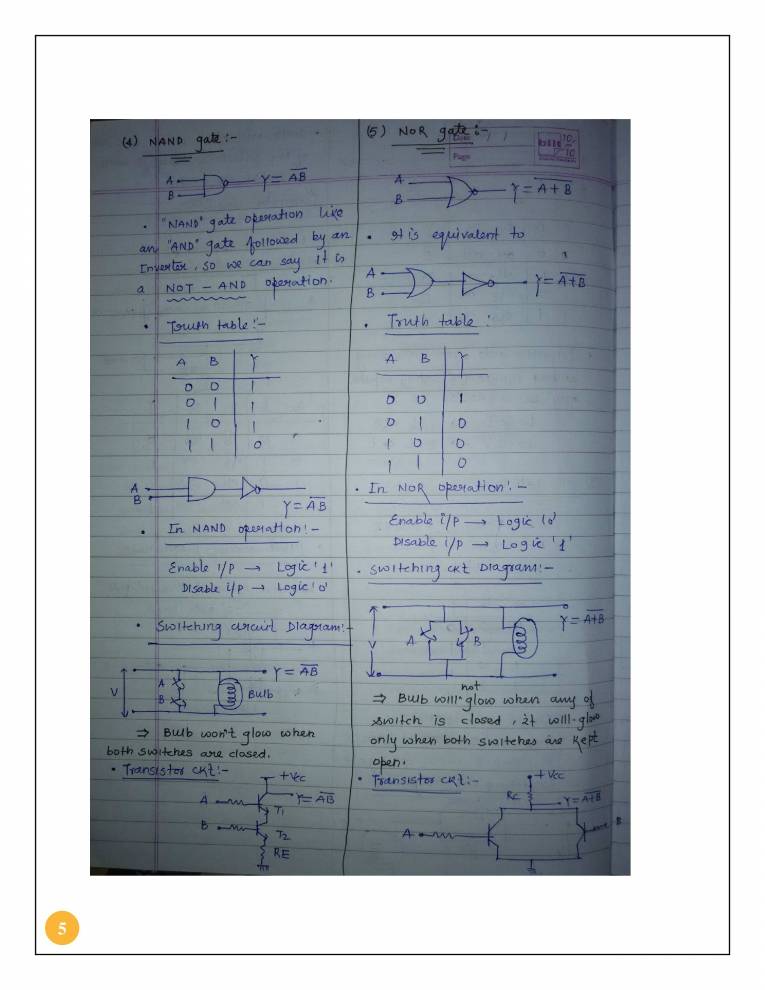 (4) NAND gate:-
A
B
Y = A̅B̅
• "NAND" gate operation like
an "AND" gate followed by an
Inverter, so we can say It is
a NOT - AND operation.
• Truth table:-
A B Y
0 0 1
0 1 1
1 0 1
1 1 0
A
B
Y = A̅B̅
• In NAND operation:-
Enable i/p → Logic '1'
Disable i/p → Logic '0'
• Switching circuit Diagram:-
V
A
B
Bulb
Y = A̅B̅
⇒ Bulb won't glow when
both switches are closed.
• Transistor ckt:-
+Vcc
A
Y = A̅B̅
T1
B
T2
RE
(5) NOR gate:-
Date
Page
A
B
Y = A̅+̅B̅
• It is equivalent to
A
B
Y = A̅+̅B̅
• Truth table:
A B Y
0 0 1
0 1 0
1 0 0
1 1 0
• In NOR operation:-
Enable i/p → Logic '0'
Disable i/p → Logic '1'
• Switching ckt Diagram:-
V
A
B
Y = A̅+̅B̅
not
⇒ Bulb will glow when any of
switch is closed, it will glow
only when both switches are kept
open.
• Transistor ckt:-
+Vcc
Rc
Y = A̅+̅B̅
A
B
5